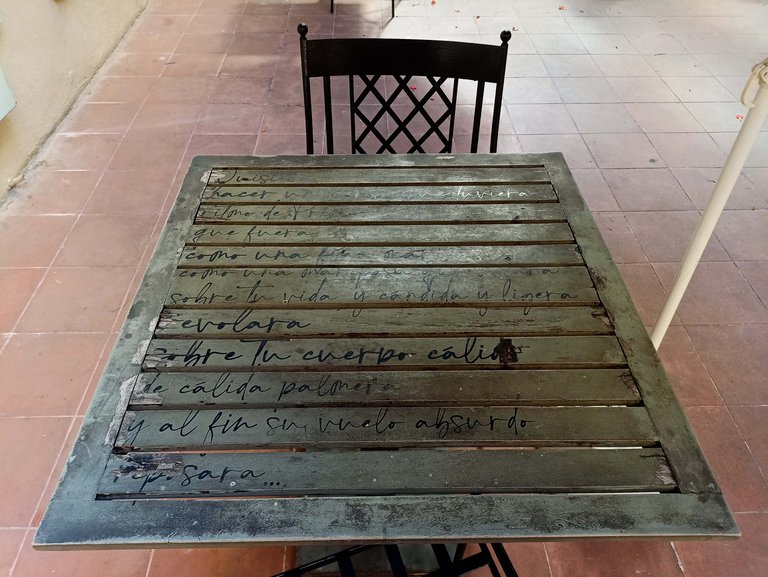 Quisi
hacer un tuviera
ritmo de Pri
que fuera
como una fina
como una mariposa
sobre tu vida y cándida y ligera
revolara
sobre tu cuerpo cálido
de cálida palmera
y al fin su vuelo absurdo
reposara...